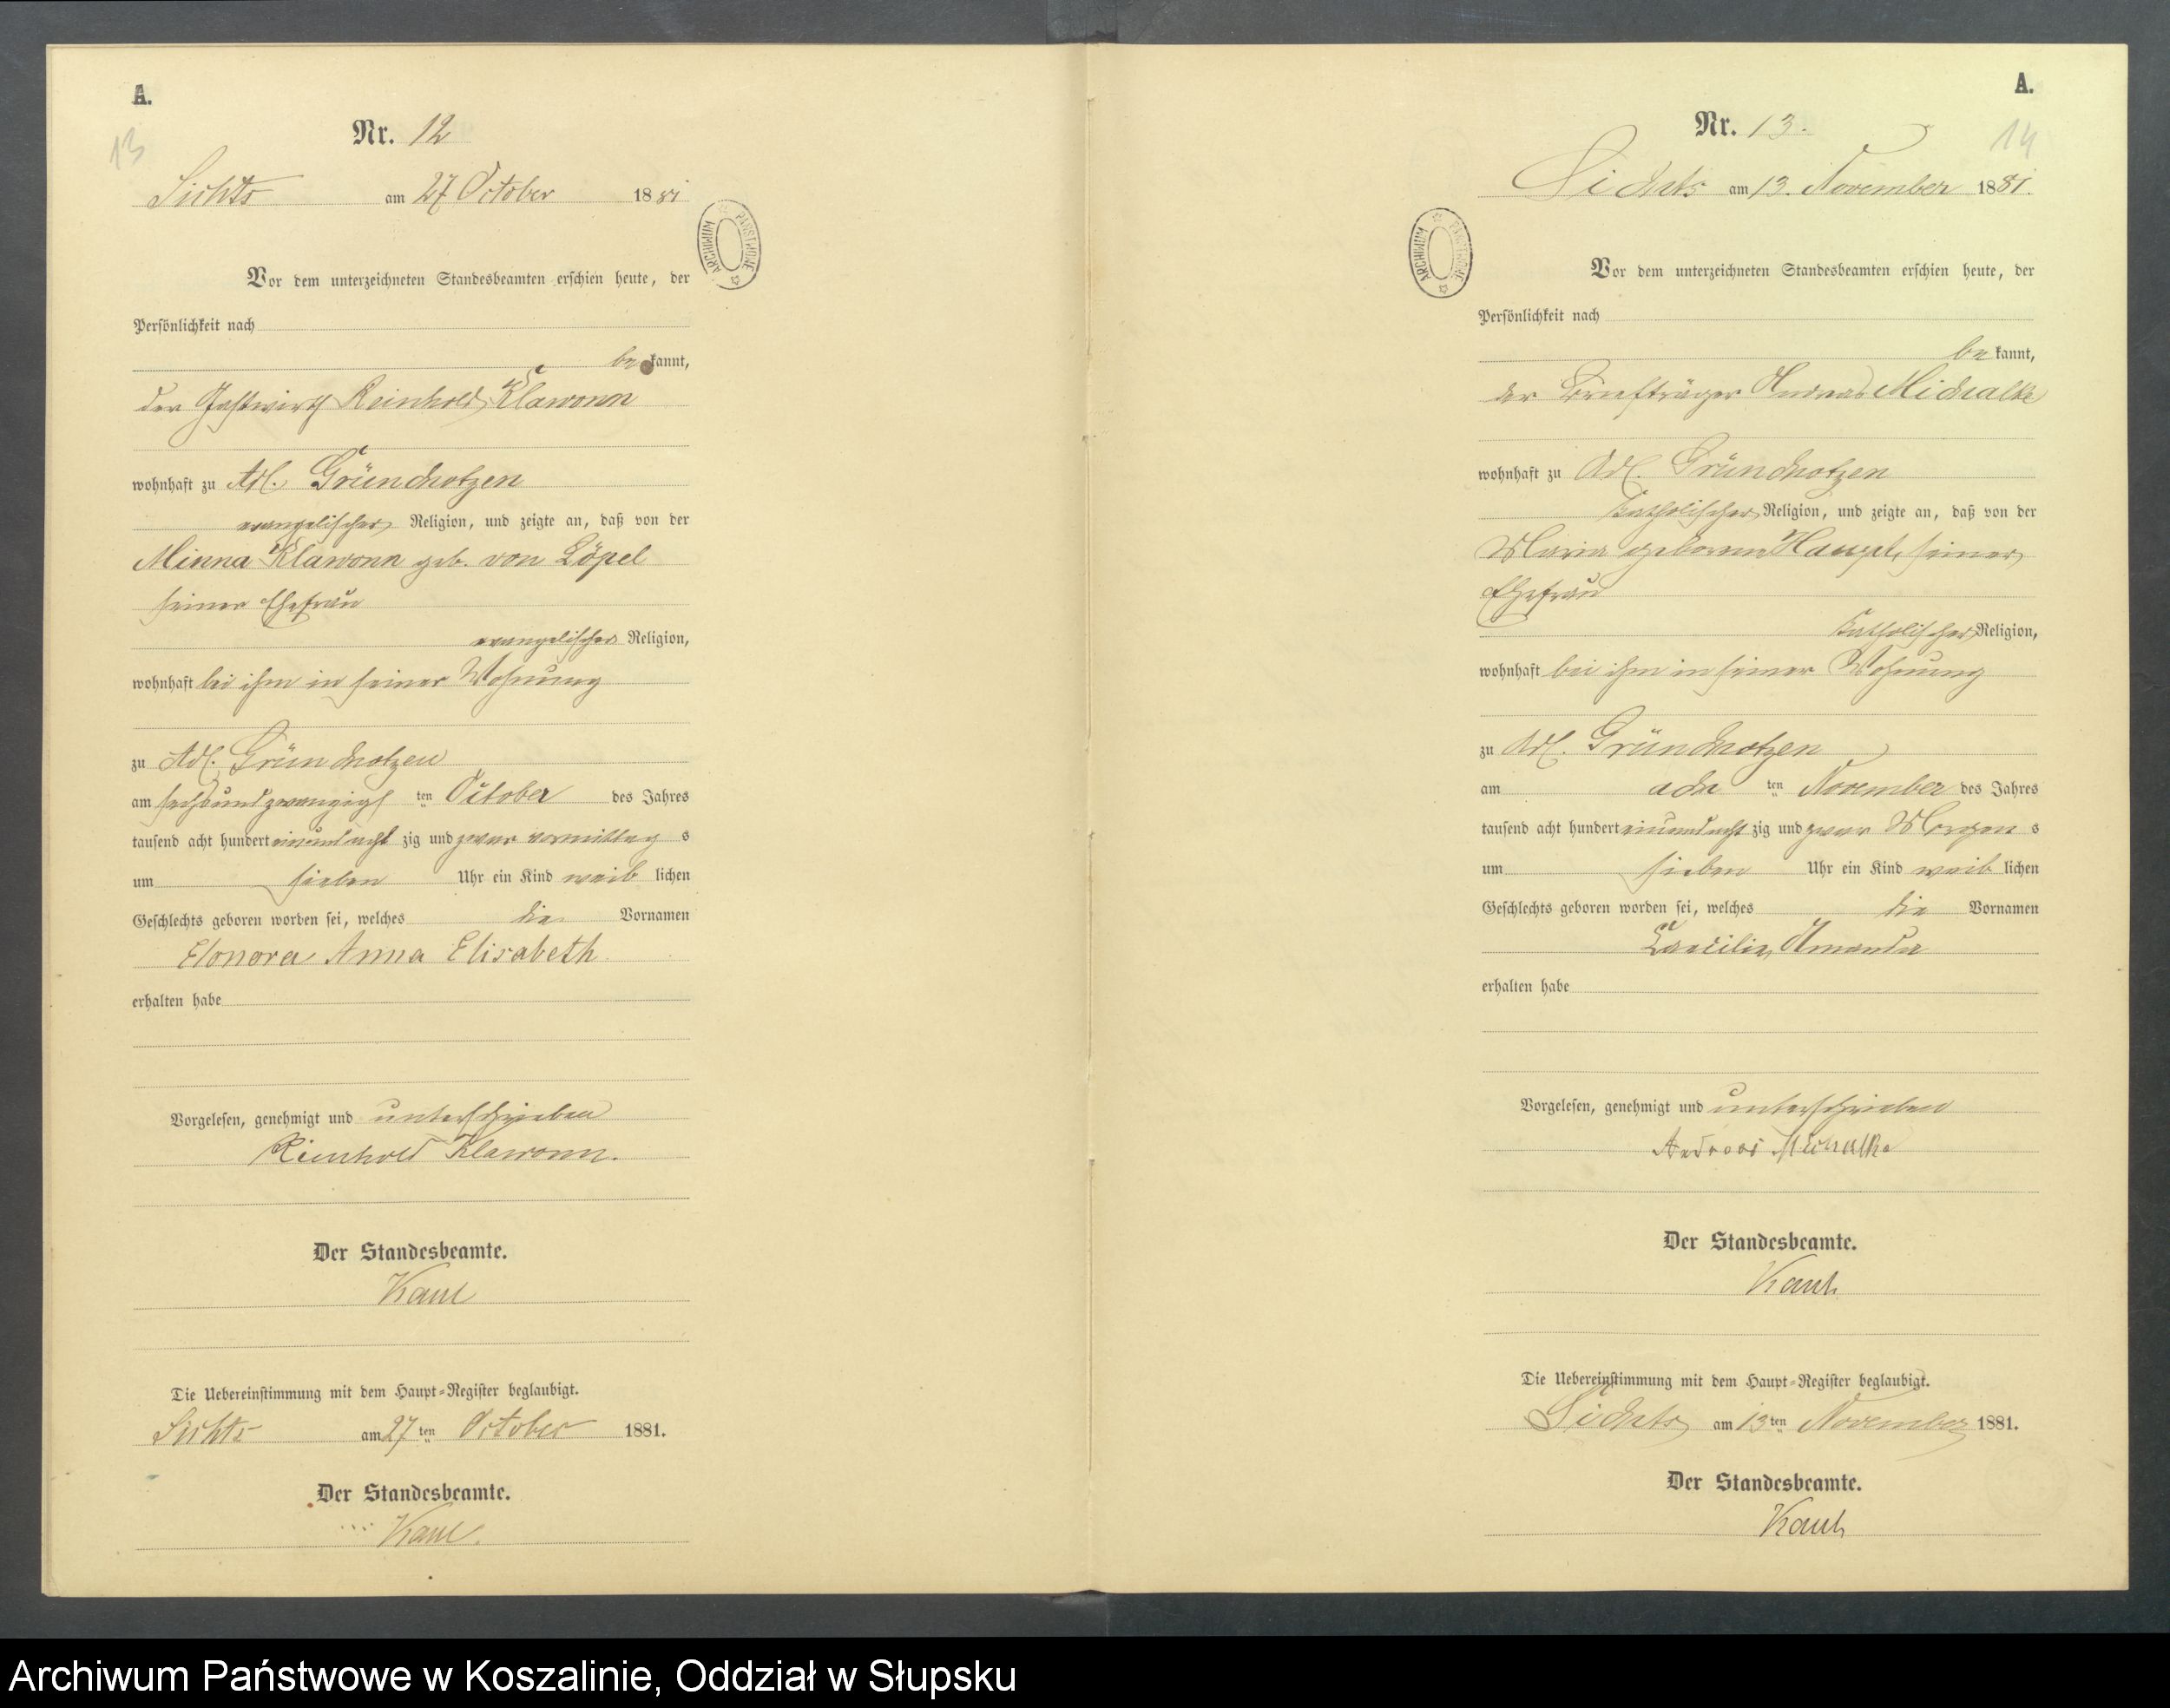 A.
13
Nr. 12
Sichts am 27 October 1881
ARCHIWUM PAŃSTWOWE
Vor dem unterzeichneten Standesbeamten erschien heute, der
Persönlichkeit nach
be kannt,
der Gastwirth Reinhold Klawonn
wohnhaft zu Adl. Grünchotzen
evangelischer Religion, und zeigte an, daß von der
Minna Klawonn geb. von Löpel
seiner Ehefrau
evangelischer Religion,
wohnhaft bei ihm in seiner Wohnung
zu Adl. Grünchotzen
am sechsundzwanzigs ten October des Jahres
tausend acht hundert einundacht zig und zwar vormittag s
um sieben Uhr ein Kind weib lichen
Geschlechts geboren worden sei, welches die Vornamen
Elonora Anna Elisabeth
erhalten habe
Vorgelesen, genehmigt und unterschrieben
Reinhold Klawonn.
Der Standesbeamte.
Die Uebereinstimmung mit dem Haupt-Register beglaubigt.
Sichts am 27 ten October 1881.
Der Standesbeamte.
A.
14
Nr. 13.
Sichts am 13. November 1881.
ARCHIWUM PAŃSTWOWE
Vor dem unterzeichneten Standesbeamten erschien heute, der
Persönlichkeit nach
be kannt,
der Briefträger Andreas Michalke
wohnhaft zu Adl. Grünchotzen
katholischer Religion, und zeigte an, daß von der
Maria geborene seiner
Ehefrau
katholischer Religion,
wohnhaft bei ihm in seiner Wohnung
zu Adl. Grünchotzen
am ach ten November des Jahres
tausend acht hundert einundacht zig und zwar Morgen s
um sieben Uhr ein Kind weib lichen
Geschlechts geboren worden sei, welches die Vornamen
Caecilia Amanda
erhalten habe
Vorgelesen, genehmigt und unterschrieben
Andreas Michalke
Der Standesbeamte.
Die Uebereinstimmung mit dem Haupt-Register beglaubigt.
Sichts am 13 ten November 1881.
Der Standesbeamte.
Archiwum Państwowe w Koszalinie, Oddział w Słupsku